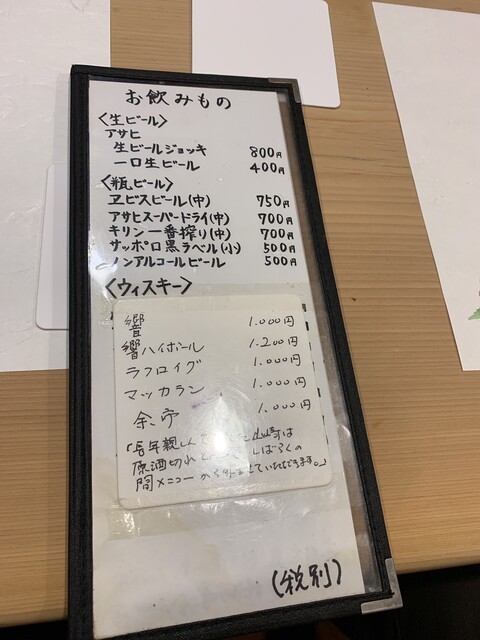 お飲みもの
〈生ビール〉
アサヒ
生ビールジョッキ 800円
一口生ビール 400円
〈瓶ビール〉
ヱビスビール(中) 750円
アサヒスーパードライ(中) 700円
キリン一番搾り(中) 700円
サッポロ黒ラベル(小) 500円
ノンアルコールビール 500円
〈ウィスキー〉
響 1.000円
響ハイボール 1.200円
ラフロイグ 1.000円
マッカラン 1.000円
余市 1.000円
「長年親しん 山崎は
原酒切れ しばらくの
間メニューから外させていただきます。」
(税別)